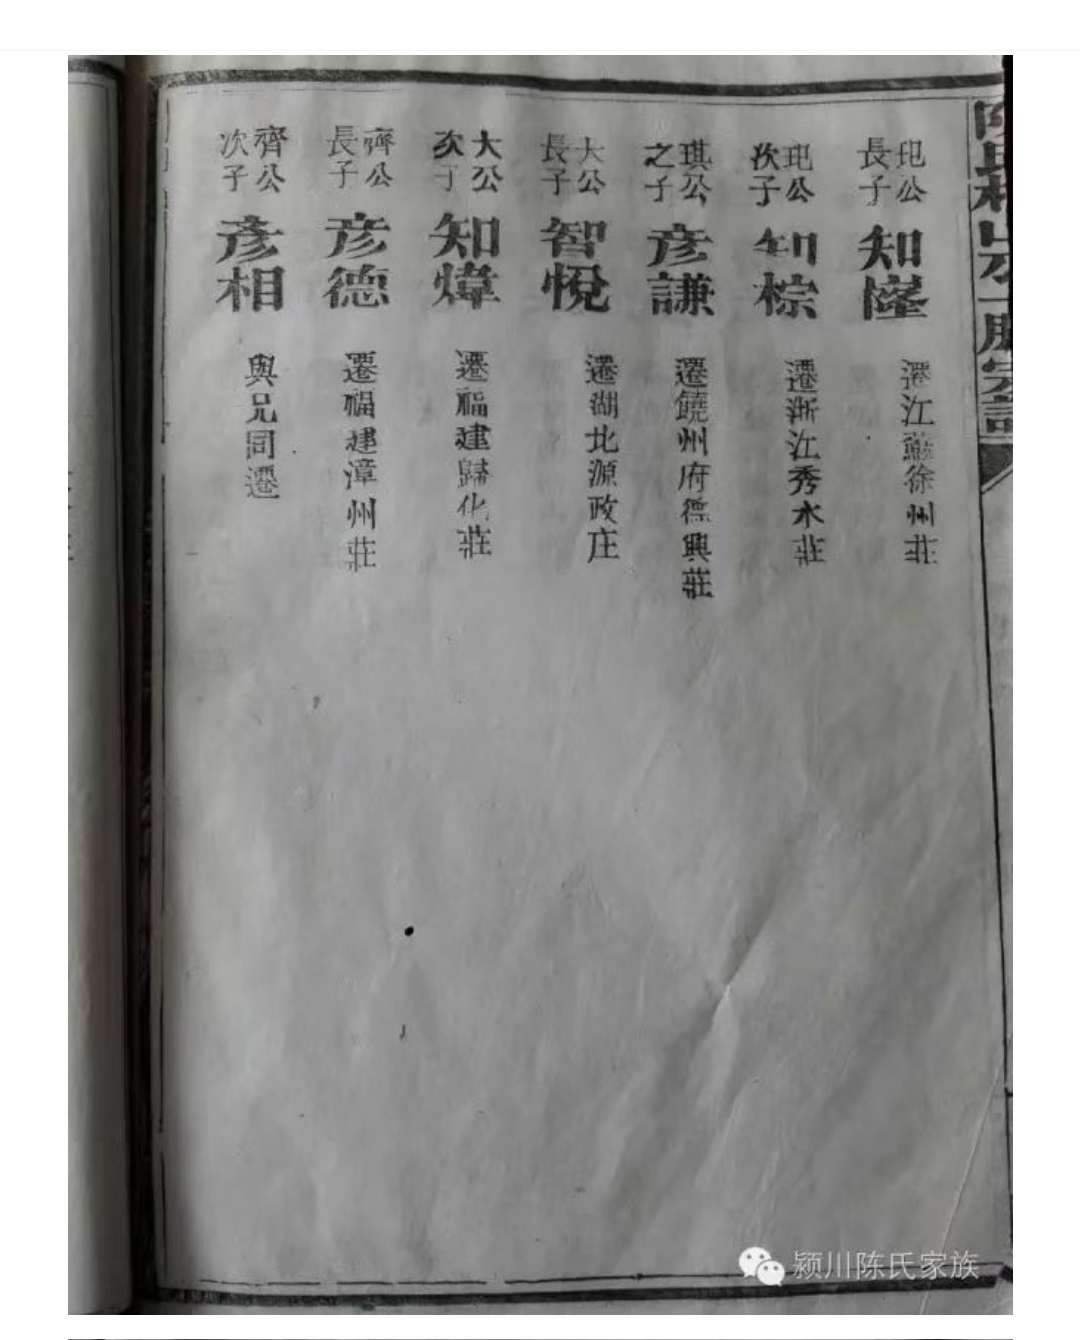 玘公長子 知㙓 遷江蘇徐州莊
玘公次子 知棕 遷浙江秀水莊
琪公之子 彦謙 遷饒州府德興莊
大公長子 智悅 遷湖北源政庄
大公次丁 知煒 遷福建歸化莊
齊公長子 彦德 遷福建漳州莊
齊公次子 彦相 與兄同遷
颍川陈氏家族